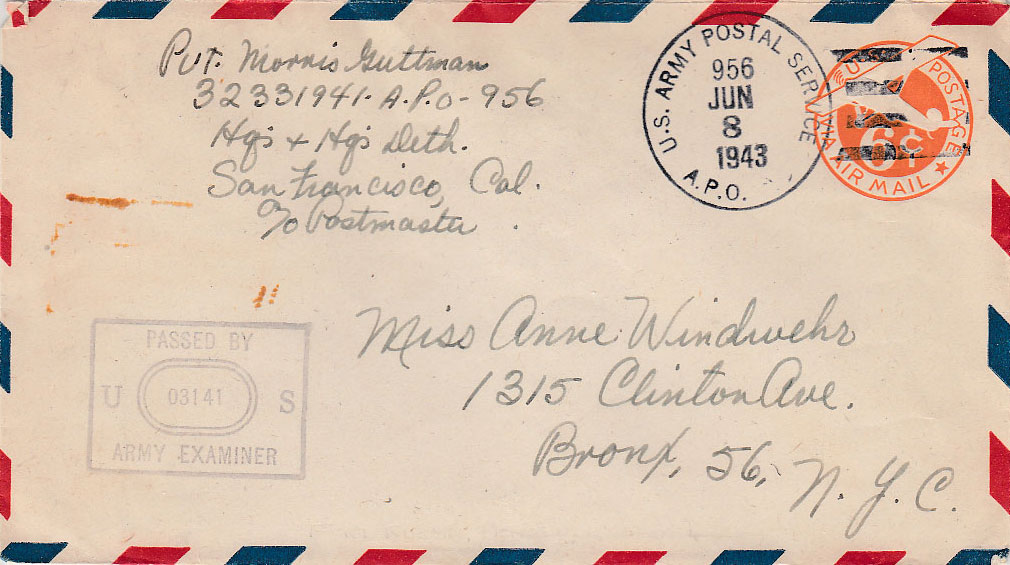 Pvt. Morris Guttman
32331941. A.P.O-956
Hqs + Hqs Deth.
San Francisco, Cal.
c/o Postmaster
U.S. ARMY POSTAL SERVICE
956
JUN
8
1943
A.P.O.
U POSTAGE
6¢
VIA AIR MAIL
Miss Anne Windwehr
1315 Clinton Ave.
Bronx, 56, N.Y.C.
PASSED BY
U 03141 S
ARMY EXAMINER